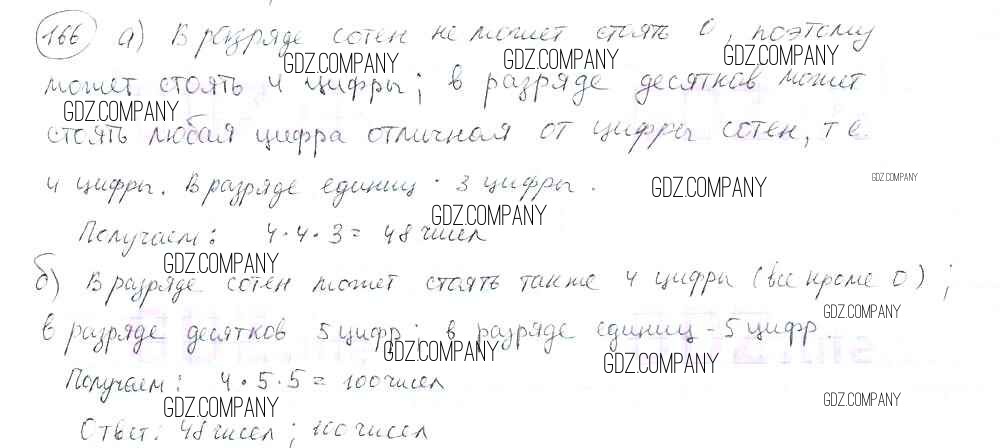 166 а) В разряде сотен не может стоять 0, поэтому
GDZ.COMPANY GDZ.COMPANY GDZ.COMPANY
может стоять 4 цифры; в разряде десятков может
GDZ.COMPANY
стоять любая цифра отличная от цифры сотен, т е.
4 цифры. В разряде единиц - 3 цифры.
GDZ.COMPANY GDZ.COMPANY
GDZ.COMPANY
Получаем: 4·4·3 = 48 чисел
GDZ.COMPANY
б) В разряде сотен может стоять также 4 цифры (все кроме 0);
GDZ.COMPANY
в разряде десятков 5 цифр; в разряде единиц - 5 цифр.
GDZ.COMPANY GDZ.COMPANY
Получаем: 4·5·5 = 100 чисел
GDZ.COMPANY GDZ.COMPANY
Ответ: 48 чисел; 100 чисел